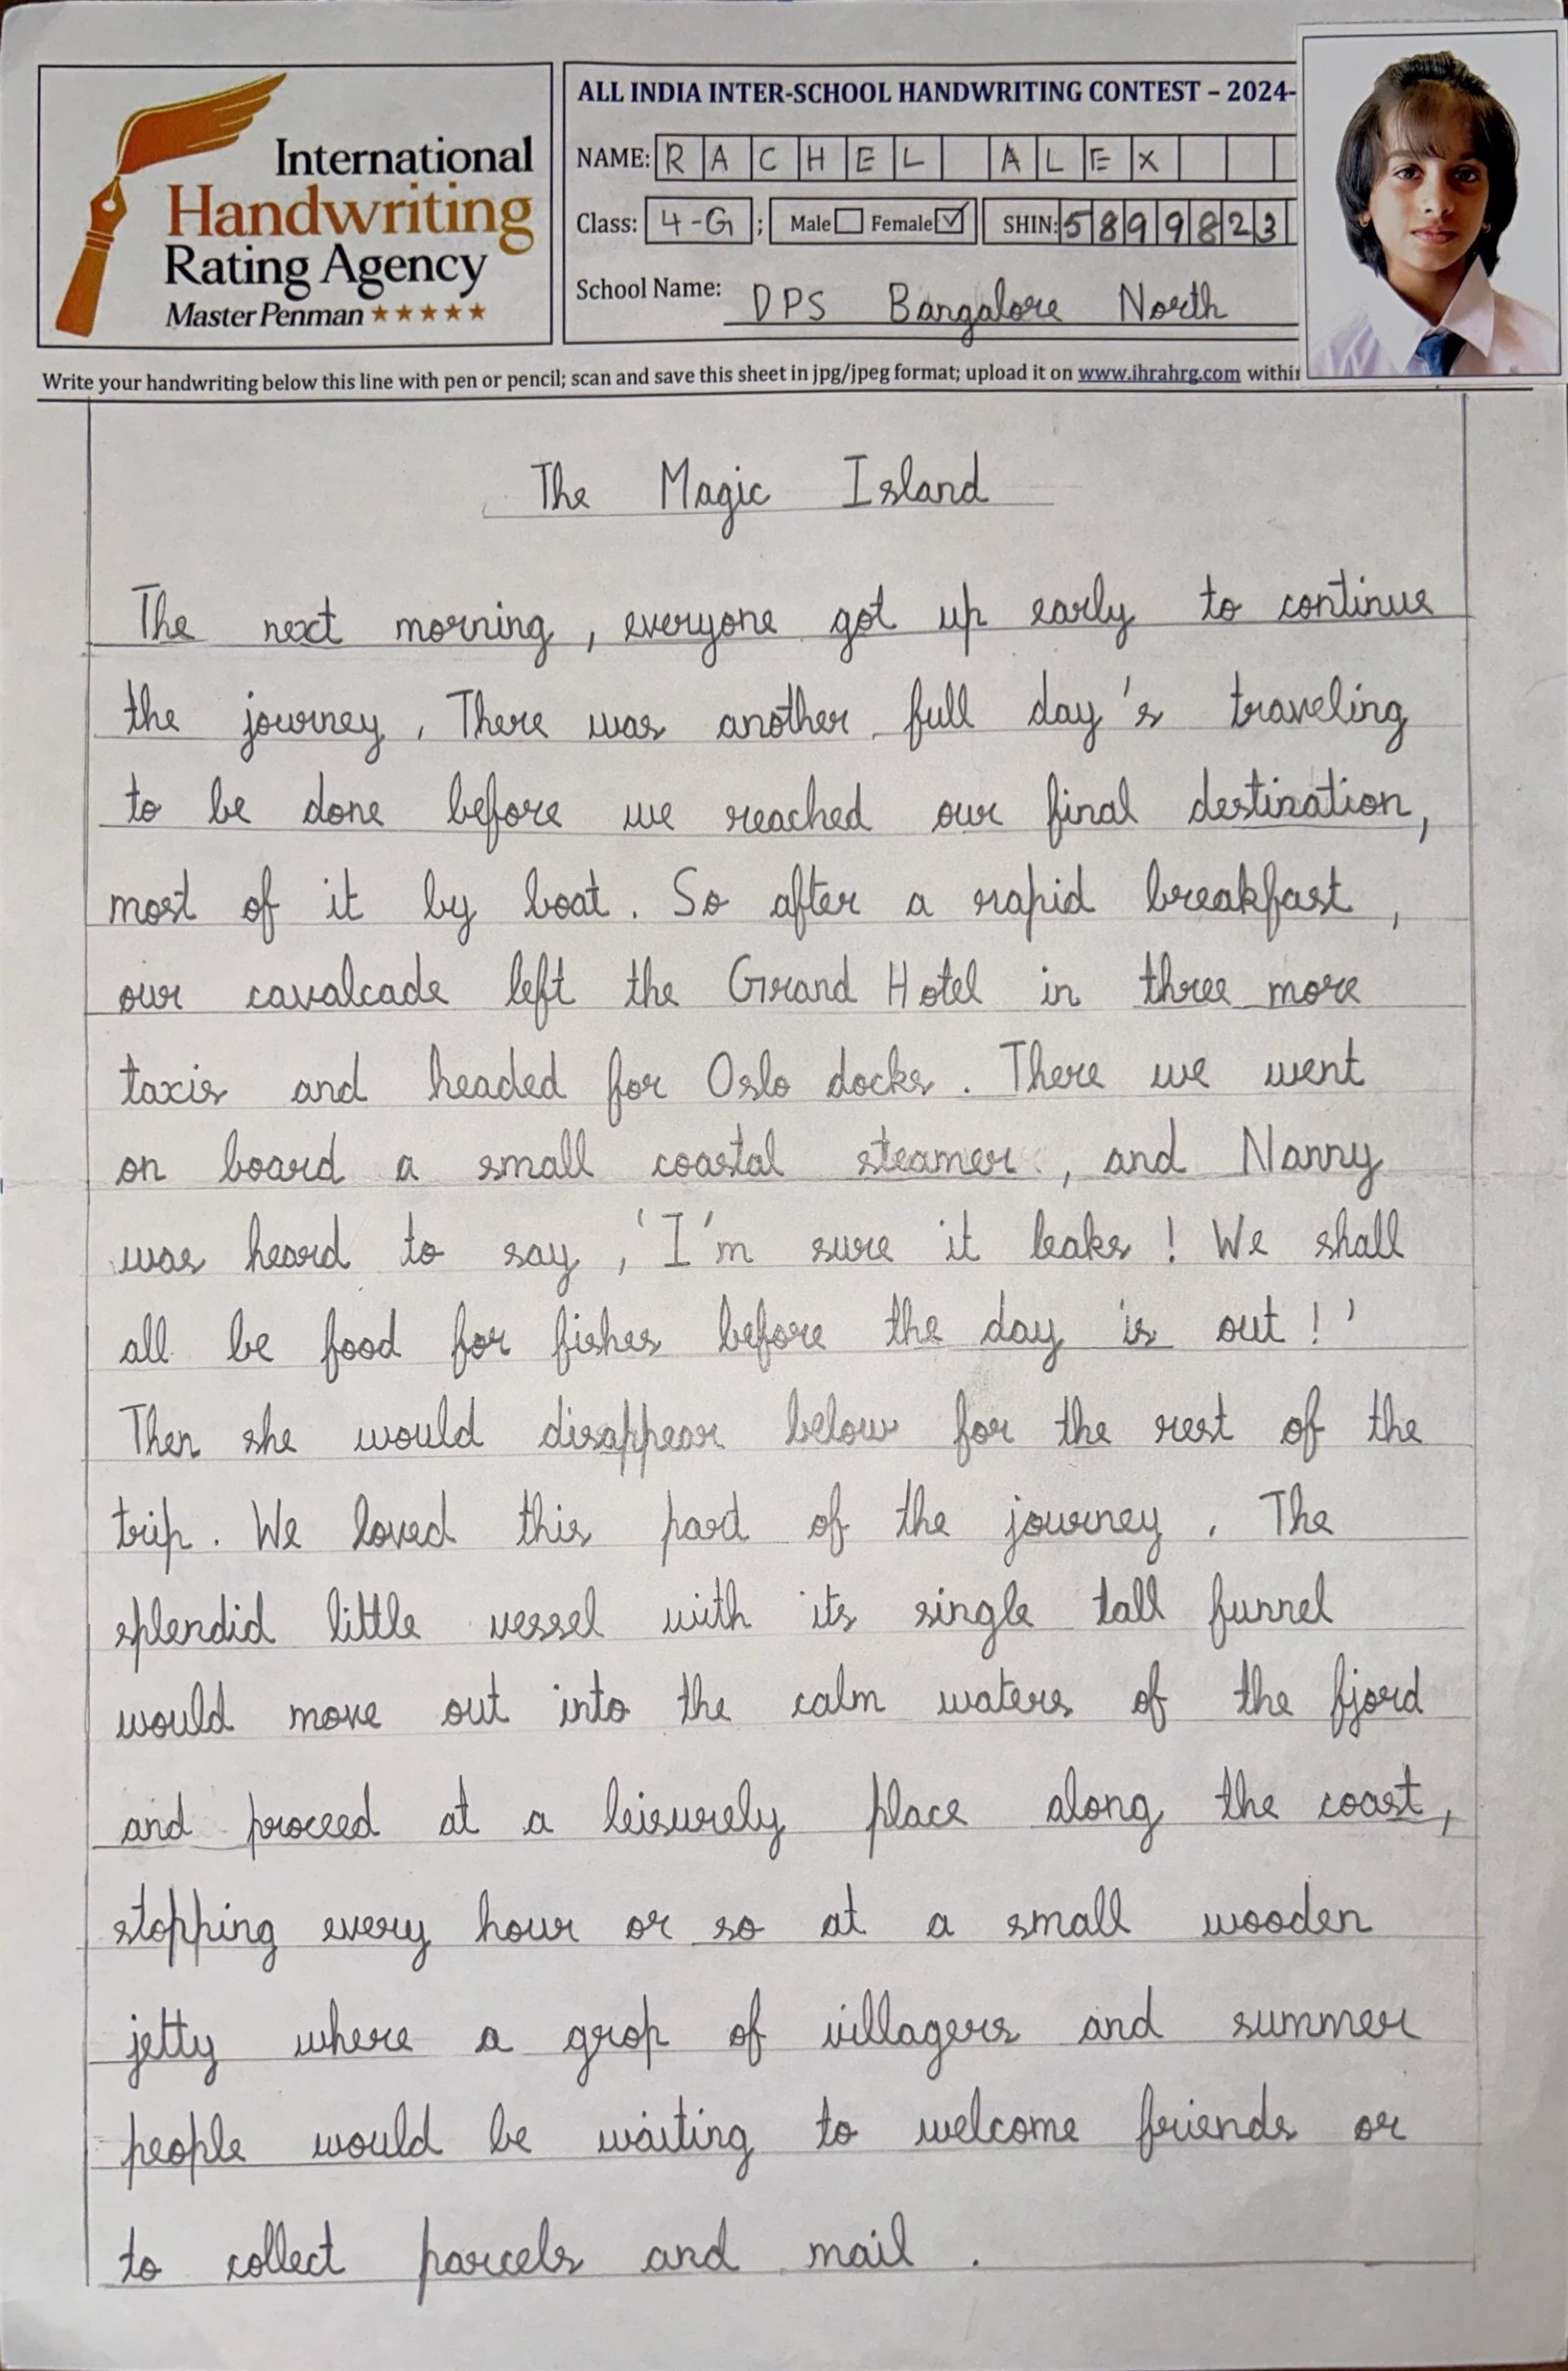 International
Handwriting
Rating Agency
Master Penman ★★★★★
ALL INDIA INTER-SCHOOL HANDWRITING CONTEST – 2024-
NAME: RACHEL ALEX
Class: 4-G ; Male Female ✓ SHIN: 5899823
School Name: DPS Bangalore North
Write your handwriting below this line with pen or pencil; scan and save this sheet in jpg/jpeg format; upload it on www.ihrahrg.com within
The Magic Island
The next morning, everyone got up early to continue
the journey. There was another full day's traveling
to be done before we reached our final destination,
most of it by boat. So after a rapid breakfast,
our cavalcade left the Grand Hotel in three more
taxis and headed for Oslo docks. There we went
on board a small coastal steamer, and Nanny
was heard to say, 'I'm sure it leaks! We shall
all be food for fishes before the day is out!'
Then she would disappear below for the rest of the
trip. We loved this part of the journey. The
splendid little vessel with its single tall funnel
would move out into the calm waters of the fjord
and proceed at a leisurely place along the coast,
stopping every hour or so at a small wooden
jetty where a grop of villagers and summer
people would be waiting to welcome friends or
to collect parcels and mail.